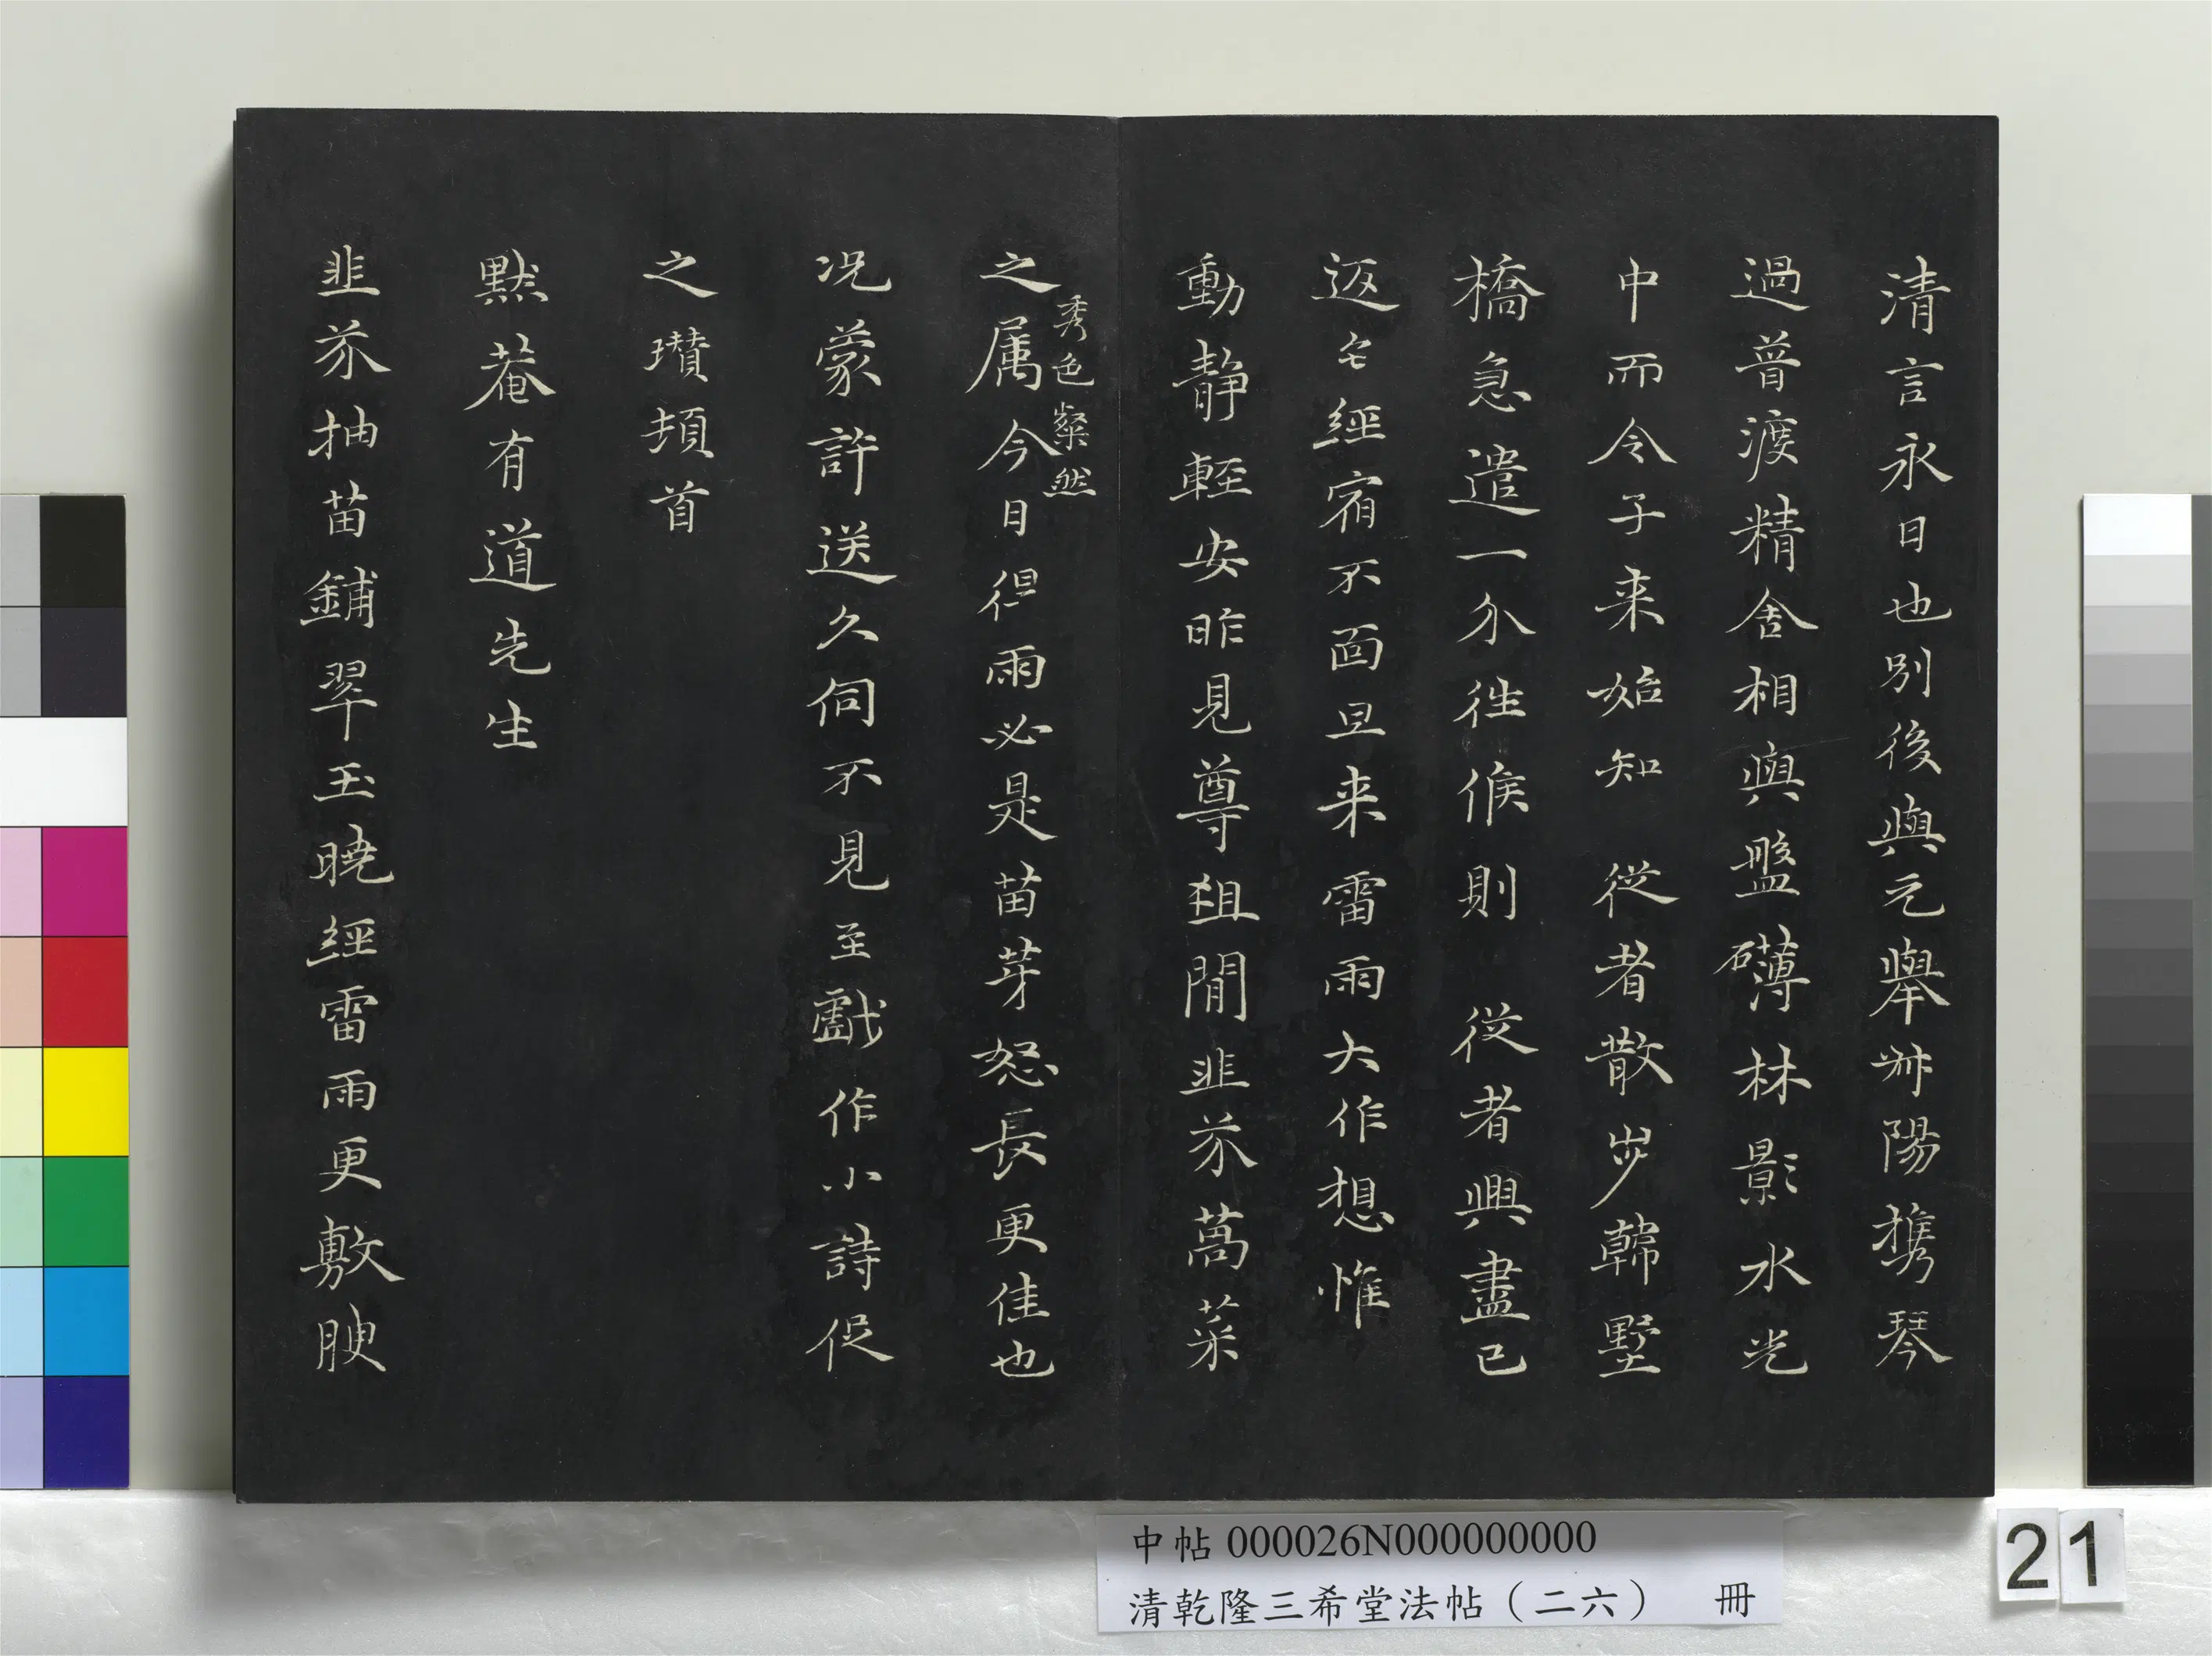 清言永日也別後與元舉衅陽攜琴
過普渡精舍相與盤礴林影水光
中而令子来始知　從者散步韓墅
橋急遣一介往候則　從者興盡已
返乇經宿不面旦来雷雨大作想惟
動靜輕安昨見尊徂閒韭芥萵菜
之属今日但雨必是苗芽怒長更佳也
秀色粲然
况蒙許送久伺不見至戲作小詩促
之瓚頓首
默菴有道先生
韭芥抽苗鋪翠玉曉經雷雨更敷腴
中帖 000026N000000000
清乾隆三希堂法帖（二六）　冊
21